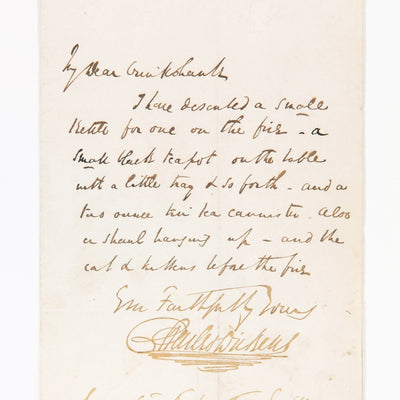 My Dear Cruikshank
I have described a small
kettle for one on the fire - a
small black teapot on the table
with a little tray & so forth - and a
two ounce tin tea cannister. Also
a shawl hanging up - and the
cat & kittens before the fire
Ever Faithfully Yours
Charles Dickens